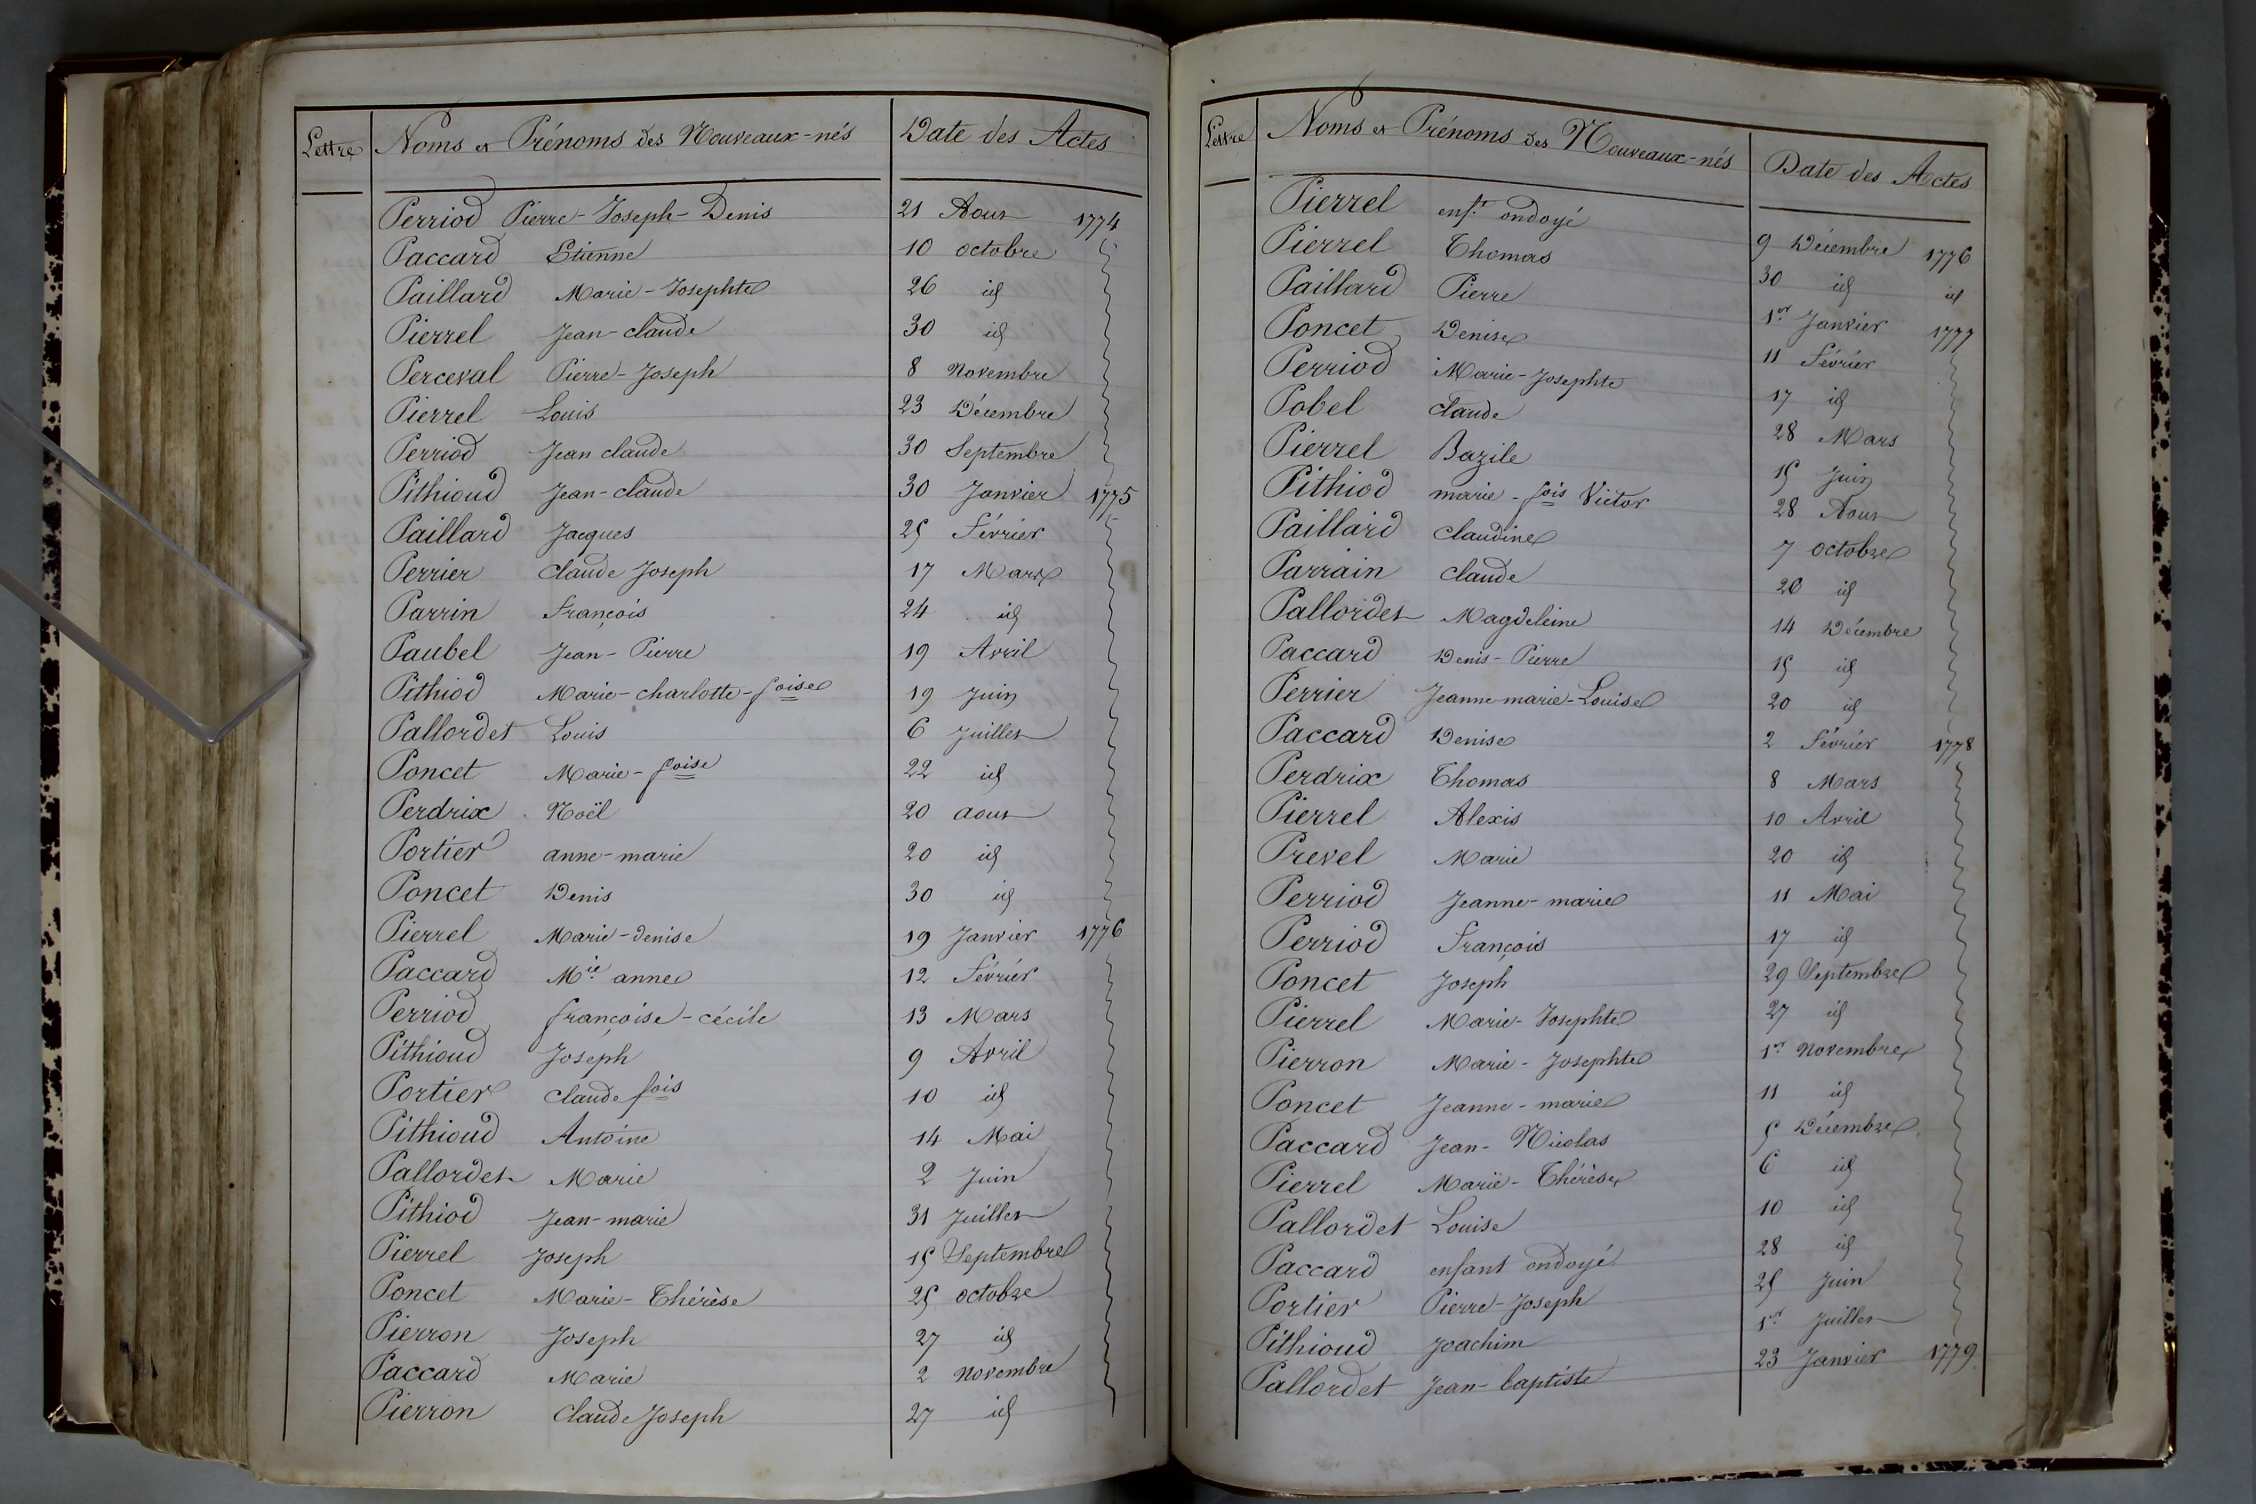 Lettre Noms et Prénoms des Nouveaux-nés Date des Actes
Perriod Pierre-Joseph-Denis 21 Aout 1774
Paccard Etienne 10 octobre
Paillard Marie-Josephte 26 id
Pierrel Jean-claude 30 id
Perceval Pierre-Joseph 8 Novembre
Pierrel Louis 23 Décembre
Perriod Jean claude 30 Septembre
Pithioud Jean-claude 30 Janvier 1775
Paillard Jacques 25 Février
Perrier Claude Joseph 17 Mars
Parrin François 24 id
Paubel Jean-Pierre 19 Avril
Pithiod Marie-charlotte-foise 19 Juin
Pallordet Louis 6 Juillet
Poncet Marie-foise 22 id
Perdrix Noël 20 aout
Portier anne-marie 20 id
Poncet Denis 30 id
Pierrel Marie-denise 19 Janvier 1776
Paccard Mie anne 12 Février
Perriod françoise-cécile 13 Mars
Pithioud Joseph 9 Avril
Portier claude fois 10 id
Pithioud Antoine 14 Mai
Pallordet Marie 2 Juin
Pithiod Jean-marie 31 Juillet
Pierrel Joseph 15 Septembre
Poncet Marie-Thérèse 25 octobre
Pierron Joseph 27 id
Paccard Marie 2 Novembre
Pierron Claude Joseph 27 id
Lettre Noms et Prénoms des Nouveaux-nés Date des Actes
Pierrel enft ondoyé 9 Décembre 1776
Pierrel Thomas 30 id id
Paillard Pierre 1er Janvier 1777
Poncet Denise 11 Février
Perriod Marie-Josephte 17 id
Pobel Claude 28 Mars
Pierrel Bazile 15 Juin
Pithiod marie-fois Victor 28 Aout
Paillard Claudine 7 octobre
Parrain Claude 26 id
Pallordet Magdeleine 14 Décembre
Paccard Denis-Pierre 15 id
Perrier Jeanne marie-Louise 20 id
Paccard Denise 2 Février 1778
Perdrix Thomas 8 Mars
Pierrel Alexis 10 Avril
Prevel Marie 20 id
Perriod Jeanne-marie 11 Mai
Perriod François 17 id
Poncet Joseph 29 Septembre
Pierrel Marie-Josephte 27 id
Pierron Marie-Josephte 1er Novembre
Poncet Jeanne-marie 11 id
Paccard Jean-Nicolas 5 Décembre
Pierrel Marie-Thérèse 6 id
Pallordet Louise 10 id
Paccard enfant ondoyé 28 id
Portier Pierre-Joseph 25 Juin
Pithioud Joachim 1er Juillet
Pallordet Jean-baptiste 23 Janvier 1779